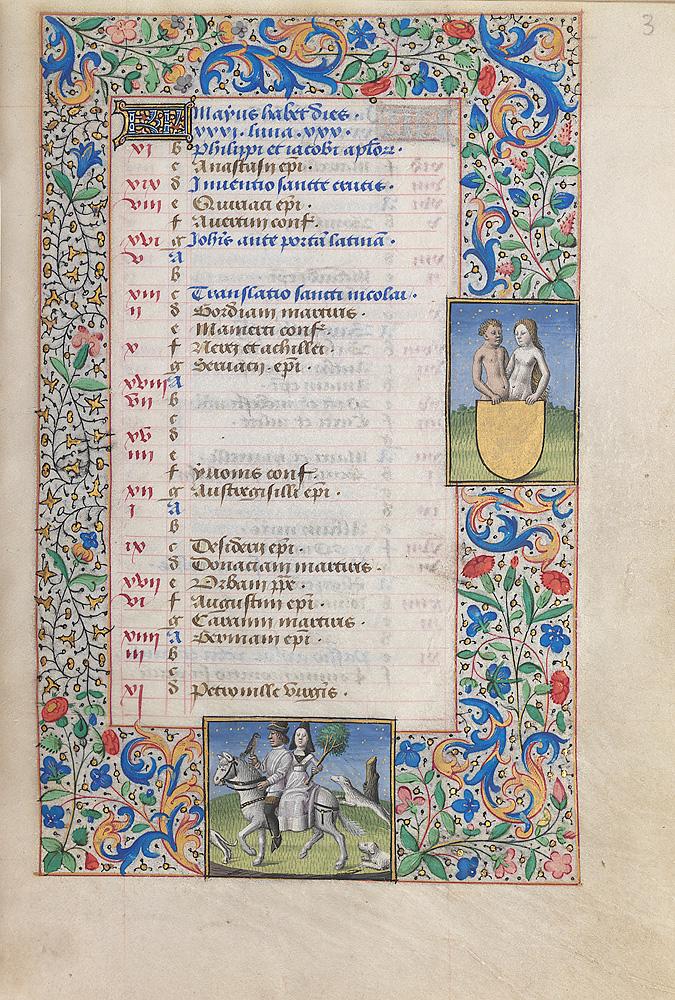 3
KL Mayus habet dies
xxxi. luna xxx.
xi b Philippi et iacobi aplor.
c Anastasii epi.
xix d Inventio sancte crucis.
viii e Quiriaci epi.
f Avertini conf.
xvi g Johis ante portā latinā.
v a
b
xiii c Translatio sancti nicolai.
ii d Gordiani martiris.
e Mamerti conf.
x f Nerei et achillei.
g Servacii epi.
xviii a
vii b
c
xv d
iiii e
f yvonis conf.
xii g Austregisilli epi.
i a
b
ix c Desiderii epi.
d Donaciani martiris.
xvii e Urbani ppe.
vi f Augustini epi.
g Carauni martiris.
xiiii a Germani epi.
iii b
c
xi d Petronille virgis.